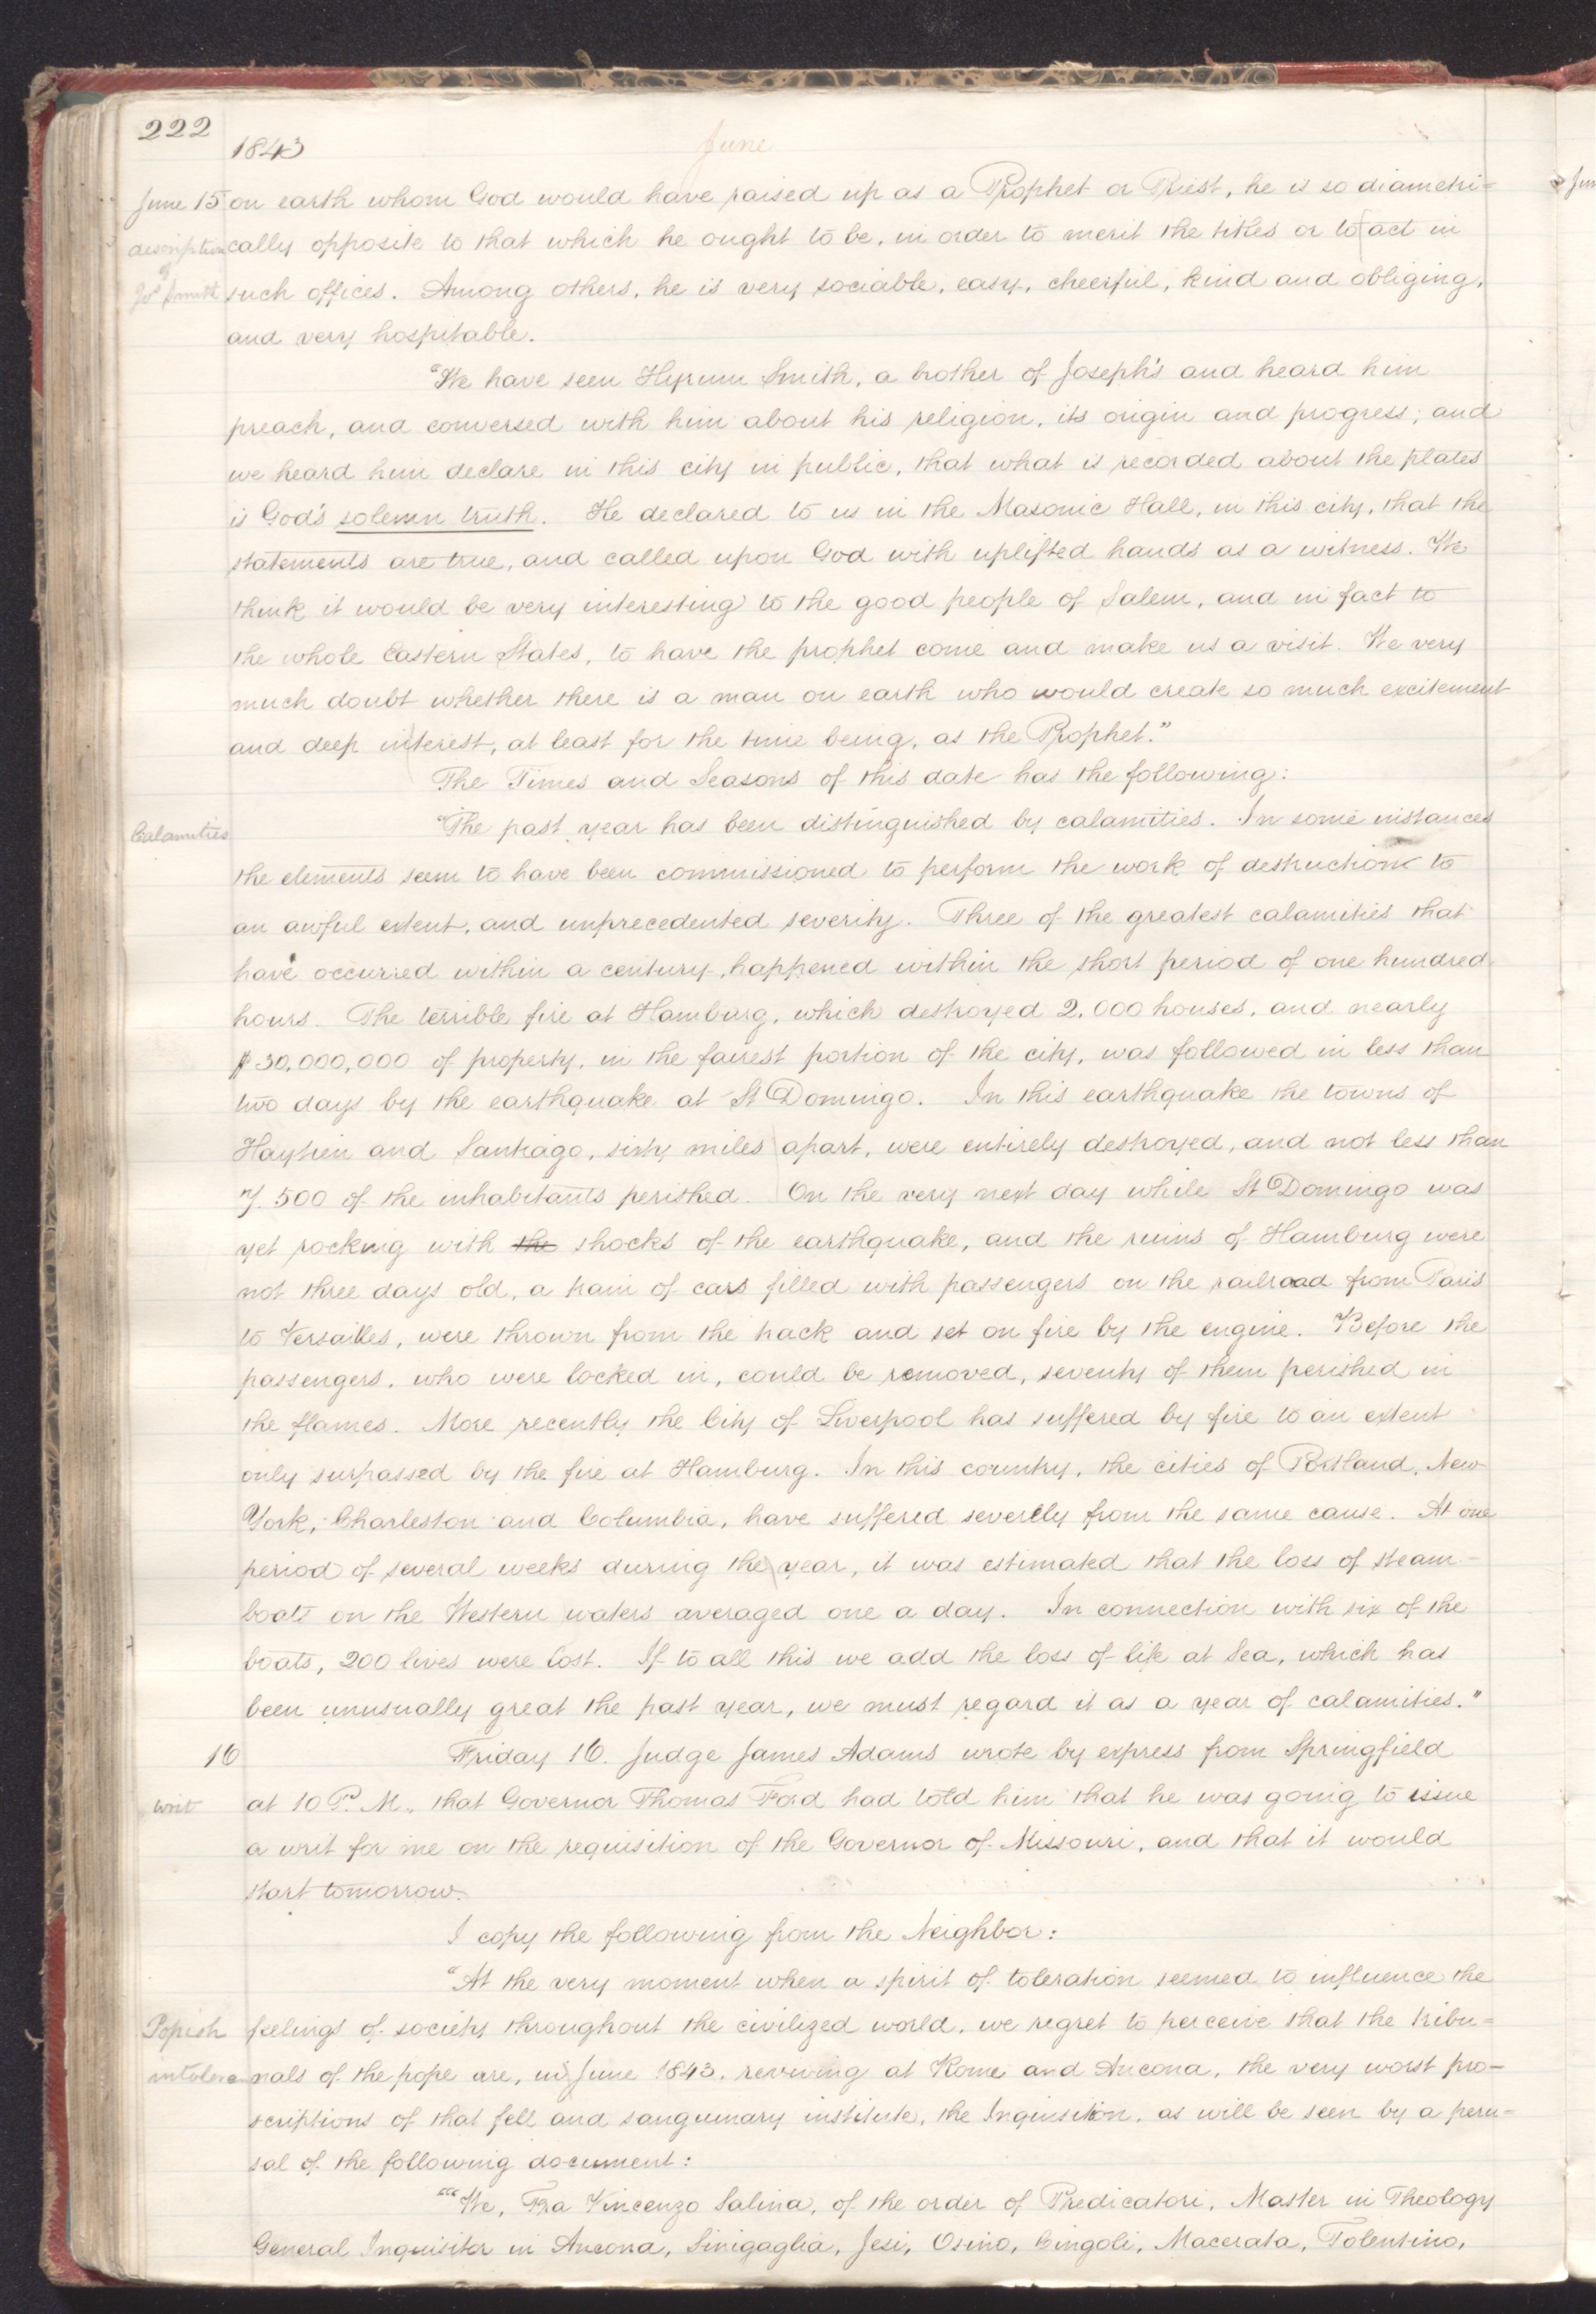 222
1843
June
June 15 on earth whom God would have raised up as a Prophet or Priest, he is so diametri=
description cally opposite to that which he ought to be, in order to merit the titles or to act in
of
Jos Smith such offices. Among others, he is very sociable, easy, cheerful, kind and obliging,
and very hospitable.
"We have seen Hyrum Smith, a brother of Joseph's and heard him
preach, and conversed with him about his religion, its origin and progress; and
we heard him declare in this city in public, that what is recorded about the plates
is God's solemn truth. He declared to us in the Masonic Hall, in this city, that the
statements are true, and called upon God with uplifted hands as a witness. We
think it would be very interesting to the good people of Salem, and in fact to
the whole Eastern States, to have the prophet come and make us a visit. We very
much doubt whether there is a man on earth who would create so much excitement
and deep interest, at least for the time being, as the Prophet."
The Times and Seasons of this date has the following:
Calamities "The past year has been distinguished by calamities. In some instances
the elements seem to have been commissioned to perform the work of destruction to
an awful extent, and unprecedented severity. Three of the greatest calamities that
have occurred within a century, happened within the short period of one hundred
hours. The terrible fire at Hamburg, which destroyed 2,000 houses, and nearly
$30,000,000 of property, in the fairest portion of the city, was followed in less than
two days by the earthquake at St Domingo. In this earthquake the towns of
Haytien and Santiago, sixty miles apart, were entirely destroyed, and not less than
7.500 of the inhabitants perished. On the very next day while St Domingo was
yet rocking with the shocks of the earthquake, and the ruins of Hamburg were
not three days old, a train of cars filled with passengers on the railroad from Paris
to Versailles, were thrown from the track and set on fire by the engine. Before the
passengers, who were locked in, could be removed, seventy of them perished in
the flames. More recently the City of Liverpool has suffered by fire to an extent
only surpassed by the fire at Hamburg. In this country, the cities of Portland, New
York, Charleston and Columbia, have suffered severely from the same cause. At one
period of several weeks during the year, it was estimated that the loss of steam-
boats on the Western waters averaged one a day. In connection with six of the
boats, 200 lives were lost. If to all this we add the loss of life at Sea, which has
been unusually great the past year, we must regard it as a year of calamities."
16 Friday 16. Judge James Adams wrote by express from Springfield
writ at 10 P. M., that Governor Thomas Ford had told him that he was going to issue
a writ for me on the requisition of the Governor of Missouri, and that it would
start tomorrow.
I copy the following from the Neighbor:
"At the very moment when a spirit of toleration seemed to influence the
Popish feelings of society throughout the civilized world, we regret to perceive that the tribu=
intoleran nals of the pope are, in June 1843, reviving at Rome and Ancona, the very worst pro-
scriptions of that fell and sanguinary institute, the Inquisition, as will be seen by a peru=
sal of the following document:
"'"We, Fra Vincenzo Salina, of the order of Predicatori, Master in Theology
General Inquisitor in Ancona, Sinigaglia, Jesi, Osino, Cingoli, Macerata, Tolentino,